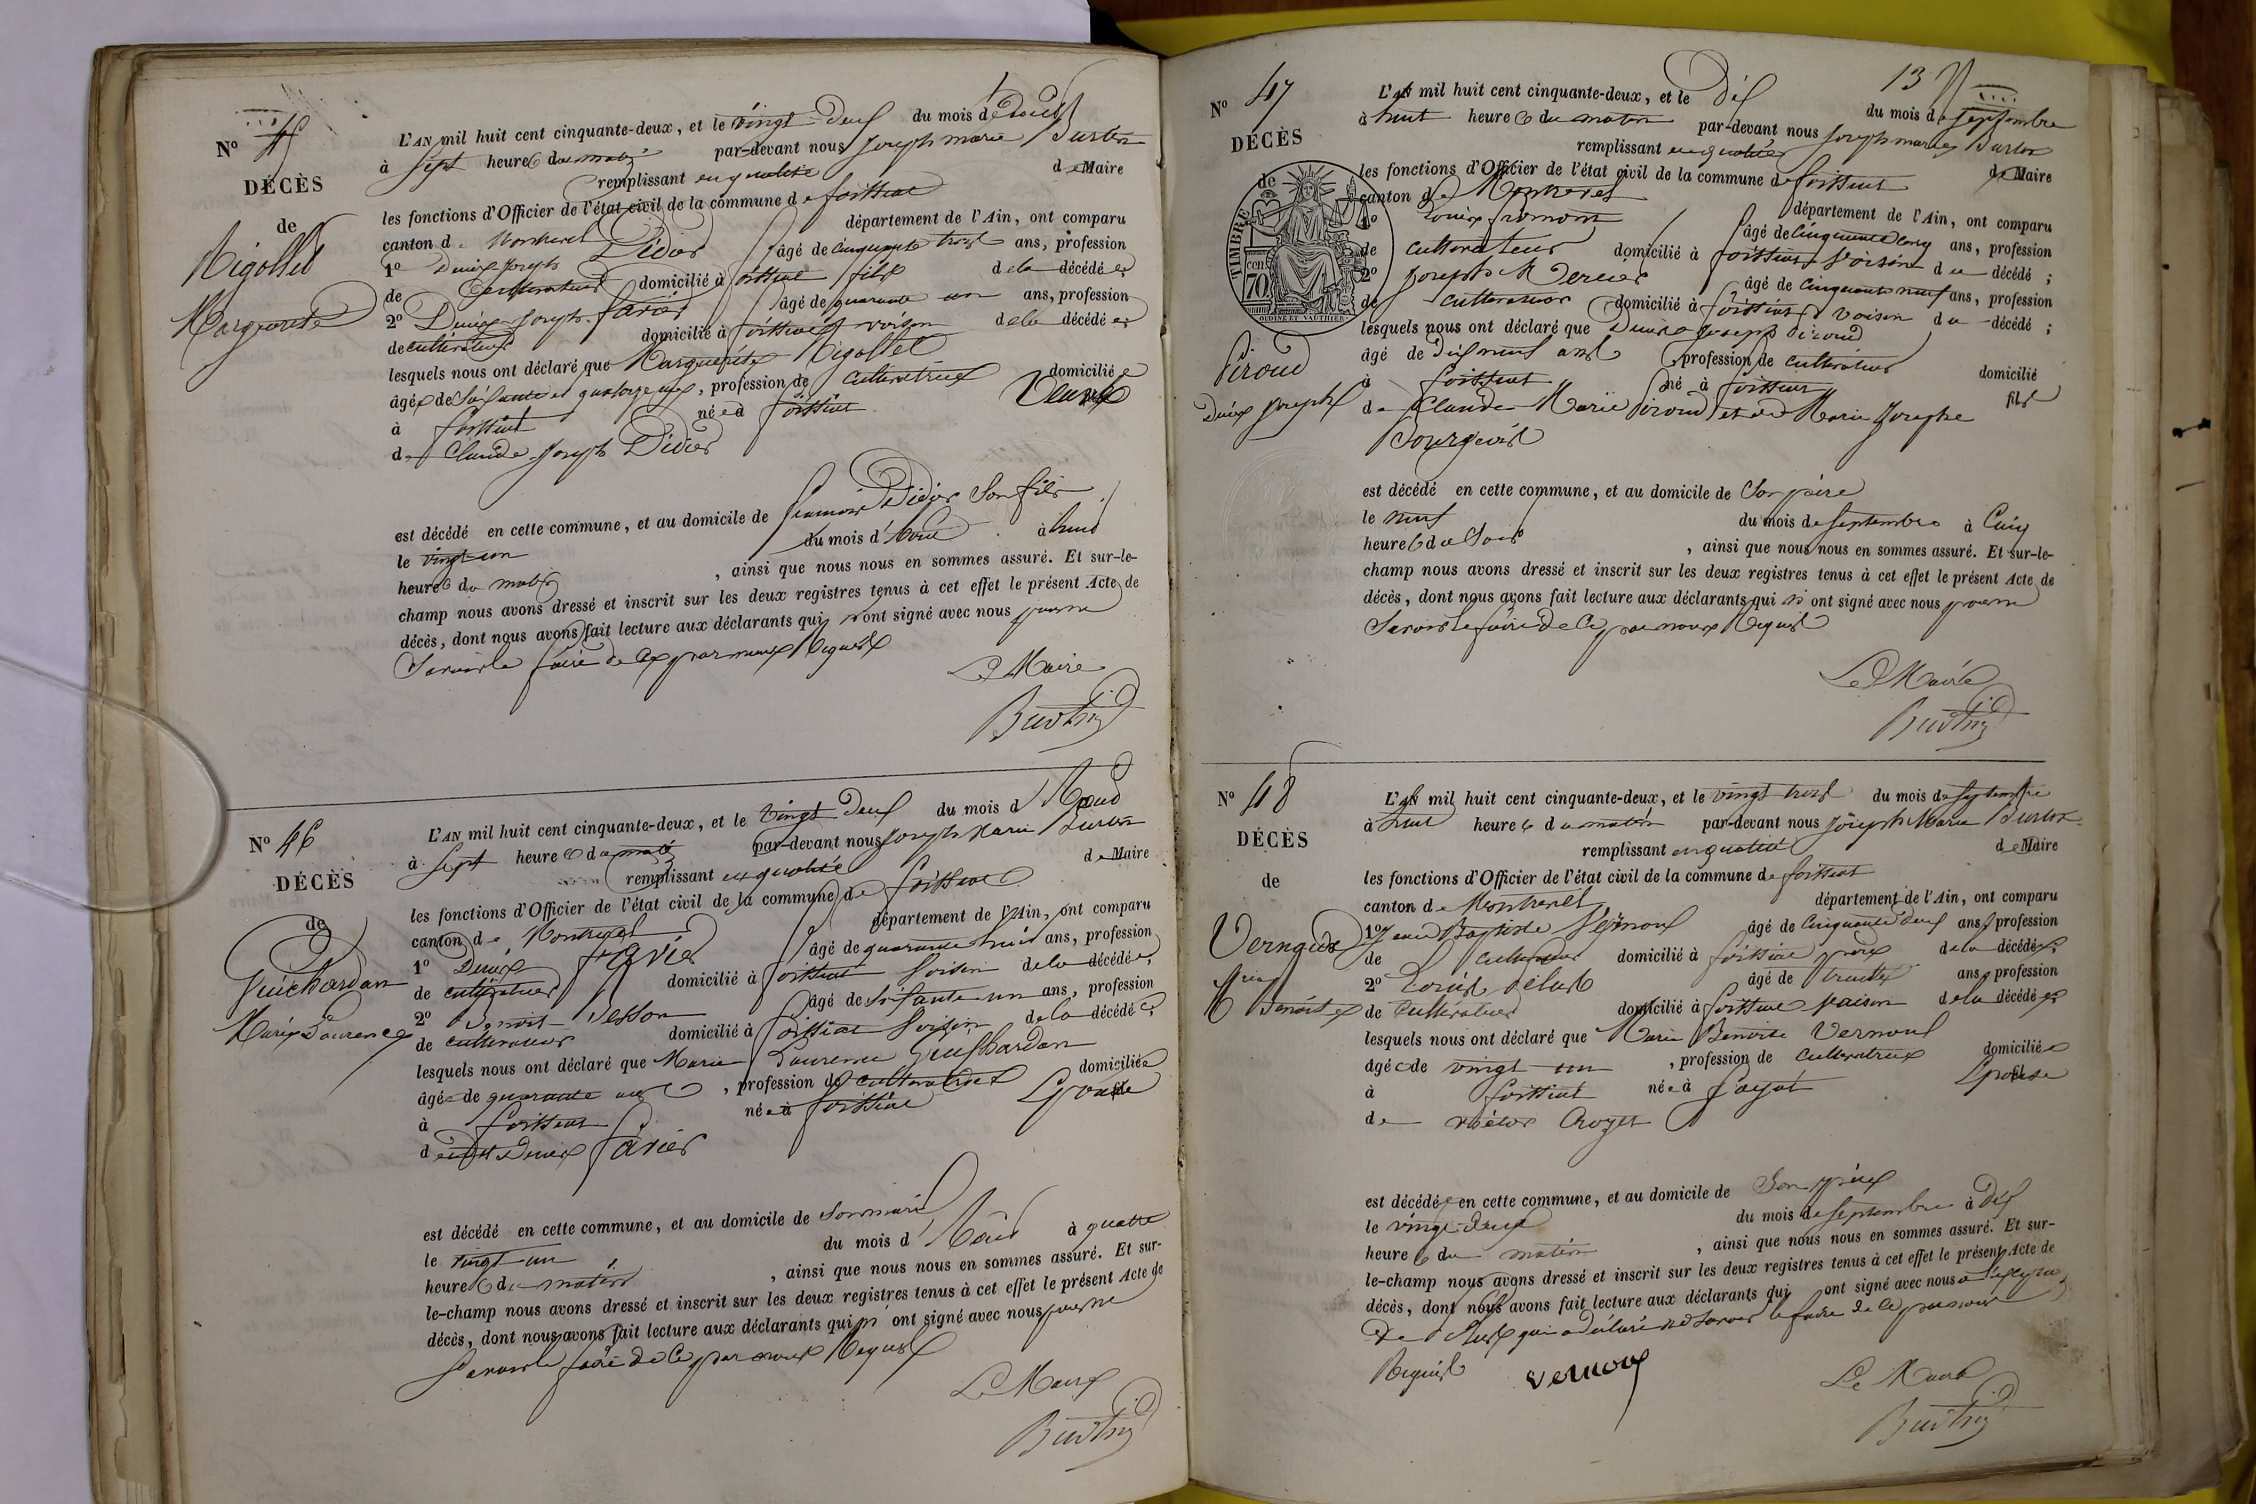 N° 45
DÉCÈS
de
Rigollet
Marguerite
L'AN mil huit cent cinquante-deux, et le vingt deux du mois d'Aout
à sept heures du matin par-devant nous Joseph marie Burtin
remplissant en qualité de Maire
les fonctions d'Officier de l'état civil de la commune de foissiat
canton de Montrevel département de l'Ain, ont comparu
1° Denis Joseph Didier âgé de cinquante trois ans, profession
de Cultivateur domicilié à foissiat fils de la décédée;
2° Denis Joseph favier âgé de quarante ans, profession
de cultivateur domicilié à foissiat voisin de la décédée;
lesquels nous ont déclaré que Marguerite Rigollet
âgée de Soixante et quatorze ans, profession de cultivatrice domiciliée
à foissiat née à foissiat Veuve
de Claude Joseph Didier
est décédé en cette commune, et au domicile de Didier Son fils
le vingt un du mois d'Aout à huit
heures du matin, ainsi que nous nous en sommes assuré. Et sur-le-
champ nous avons dressé et inscrit sur les deux registres tenus à cet effet le présent Acte de
décès, dont nous avons fait lecture aux déclarants qui n'ont signé avec nous pour ne
Savoir le faire de ce par nous Requis
Le Maire
Burtin
N° 46
DÉCÈS
de
Guichardan
Marie Laurence
L'AN mil huit cent cinquante-deux, et le vingt deux du mois d'Aout
à Sept heures du matin par-devant nous Joseph Marie Burtin
remplissant en qualité de Maire
les fonctions d'Officier de l'état civil de la commune de foissiat
canton de Montrevel département de l'Ain, ont comparu
1° Denis favier âgé de quarante huit ans, profession
de cultivateur domicilié à foissiat Voisin de la décédée;
2° Benoit Vesson âgé de Soixante un ans, profession
de cultivateur domicilié à foissiat Voisin de la décédée;
lesquels nous ont déclaré que Marie Laurence Guichardan
âgée de quarante ans, profession de cultivatrice domiciliée
à foissiat née à foissiat Epouse
dudit Denis favier
est décédé en cette commune, et au domicile de Son mari
le vingt un du mois d'Aout à quatre
heures du matin, ainsi que nous nous en sommes assuré. Et sur-
le-champ nous avons dressé et inscrit sur les deux registres tenus à cet effet le présent Acte de
décès, dont nous avons fait lecture aux déclarants qui n'ont signé avec nous pour ne
Savoir le faire de ce par nous Requis
Le Maire
Burtin
13
N° 47
DÉCÈS
de
TIMBRE
cen
70
OUDINÉ ET VAUTHIER
Piroud
Denis Joseph
L'AN mil huit cent cinquante-deux, et le Dix du mois de Septembre
à huit heures du matin par-devant nous Joseph marie Burtin
remplissant en qualité de Maire
les fonctions d'Officier de l'état civil de la commune de foissiat
canton de Montrevel département de l'Ain, ont comparu
1° Louis fromont âgé de Cinquante cinq ans, profession
de cultivateur domicilié à foissiat Voisin du décédé;
2° Joseph Mercier âgé de cinquante neuf ans, profession
de cultivateur domicilié à foissiat Voisin du décédé;
lesquels nous ont déclaré que Denis Joseph Piroud
âgé de Dix neuf ans profession de cultivateur domicilié
à foissiat né à foissiat fils
de Claude Marie Piroud et de Marie Josephe
Bourgeois
est décédé en cette commune, et au domicile de Son père
le neuf du mois de Septembre à Cinq
heures du Soir, ainsi que nous nous en sommes assuré. Et sur-le-
champ nous avons dressé et inscrit sur les deux registres tenus à cet effet le présent Acte de
décès, dont nous avons fait lecture aux déclarants qui n'ont signé avec nous pour ne
Savoir le faire de ce par nous Requis
Le Maire
Burtin
N° 48
DÉCÈS
de
Vernoux
Marie
Benoite
L'AN mil huit cent cinquante-deux, et le vingt trois du mois de Septembre
à huit heures du matin par-devant nous Joseph Marie Burtin
remplissant en qualité de Maire
les fonctions d'Officier de l'état civil de la commune de foissiat
canton de Montrevel département de l'Ain, ont comparu
1° Jean Baptiste Vernoux âgé de Cinquante deux ans, profession
de Cultivateur domicilié à foissiat père de la décédée;
2° Louis âgé de trente ans, profession
de Cultivateur domicilié à foissiat voisin de la décédée;
lesquels nous ont déclaré que Marie Benoite Vernoux
âgée de vingt un, profession de cultivatrice domiciliée
à foissiat née à Jayat Epouse
de Victor Croyet
est décédée en cette commune, et au domicile de Son père
le vingt deux du mois de Septembre à Dix
heures du matin, ainsi que nous nous en sommes assuré. Et sur-
le-champ nous avons dressé et inscrit sur les deux registres tenus à cet effet le présent Acte de
décès, dont nous avons fait lecture aux déclarants qui ont signé avec nous
qui a déclaré ne Savoir le faire de ce par nous
Requis
vernoux
Le Maire
Burtin